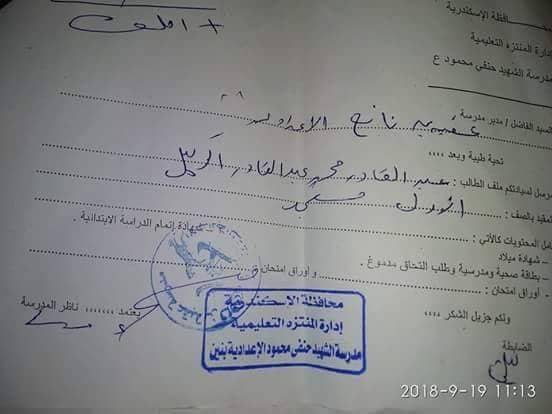 محافظة الإسكندرية
إدارة المنتزه التعليمية
مدرسة الشهيد حنفى محمود ع
+ الملف
السيد الفاضل / مدير مدرسة الإعدادية
تحية طيبة وبعد ,,,,
مرسل لسيادتكم ملف الطالب : عبد القادر محمد عبد القادر
المقيد بالصف : الأول
المحتويات كالآتى :
- شهادة ميلاد - شهادة إتمام الدراسة الابتدائية .
- بطاقة صحية ومدرسية وطلب التحاق مدموغ .
- أوراق امتحان : و أوراق امتحان
ولكم جزيل الشكر ,,,,
يعتمد ,,,,,,, ناظر المدرسة
الضابطة
محافظة الإسكندرية
إدارة المنتزه التعليمية
مدرسة الشهيد حنفى محمود الإعدادية بنين
2018-9-19 11:13